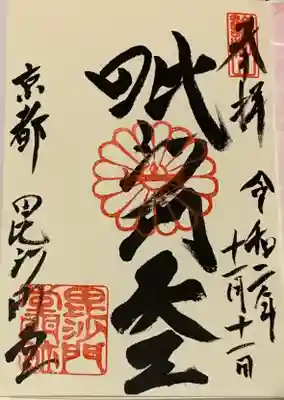 奉拝
令和二年十一月十一日
毗沙門天
京都 毘沙門堂
毘沙門